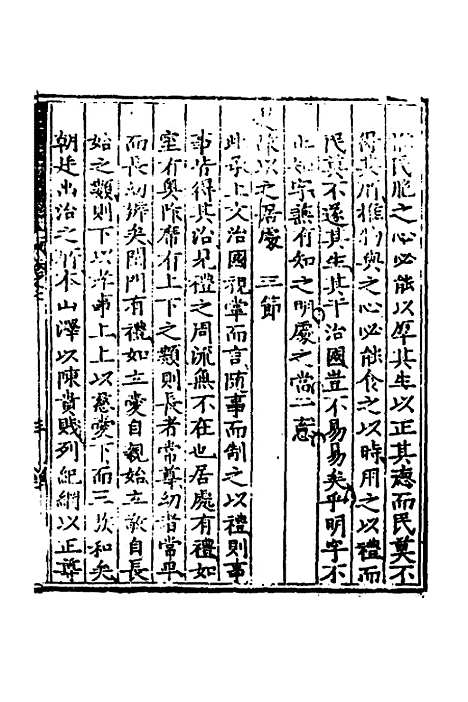 民胞之心必能以厚其生以正其德而民莫不
得其所推物與之心必能食之以時用之以禮而
民莫不遂其生其于治國豈不易易矣乎明字不
止知字兼有知之明處之當二意
是故以之居處 三節
此承上文治國視掌而言隨事而制之以禮則事
事皆得其治見禮之周流無不在也居處有禮如
室有奧阼席有上下之類則長者常尊幼者常卑
而長幼辨矣閨門有禮如立愛自親始立敬自長
始之類則下以孝事上上以慈愛下而三族和矣
朝廷出治之所本山澤以陳貴賤列紀綱以正尊